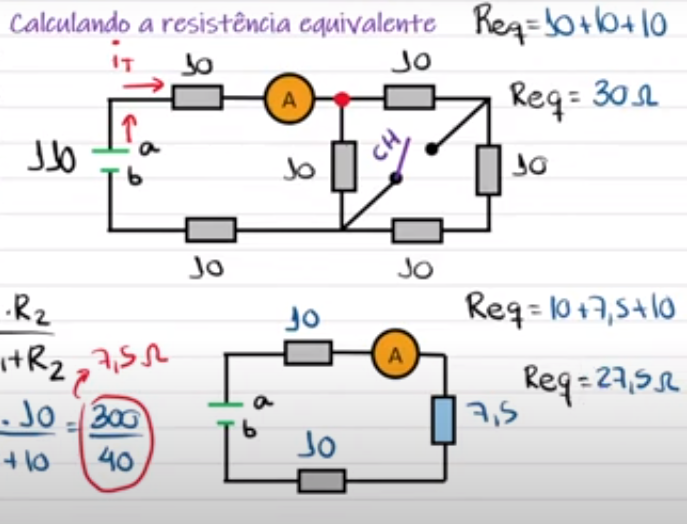 Calculando a resistência equivalente
Req=10+10+10
iT
10
A
10
Req= 30Ω
110
a
b
10
CH
10
10
10
.R2
1+R2
7,5Ω
. 10 = 300
+10 40
10
A
a
b
7,5
10
Req=10+7,5+10
Req=27,5Ω